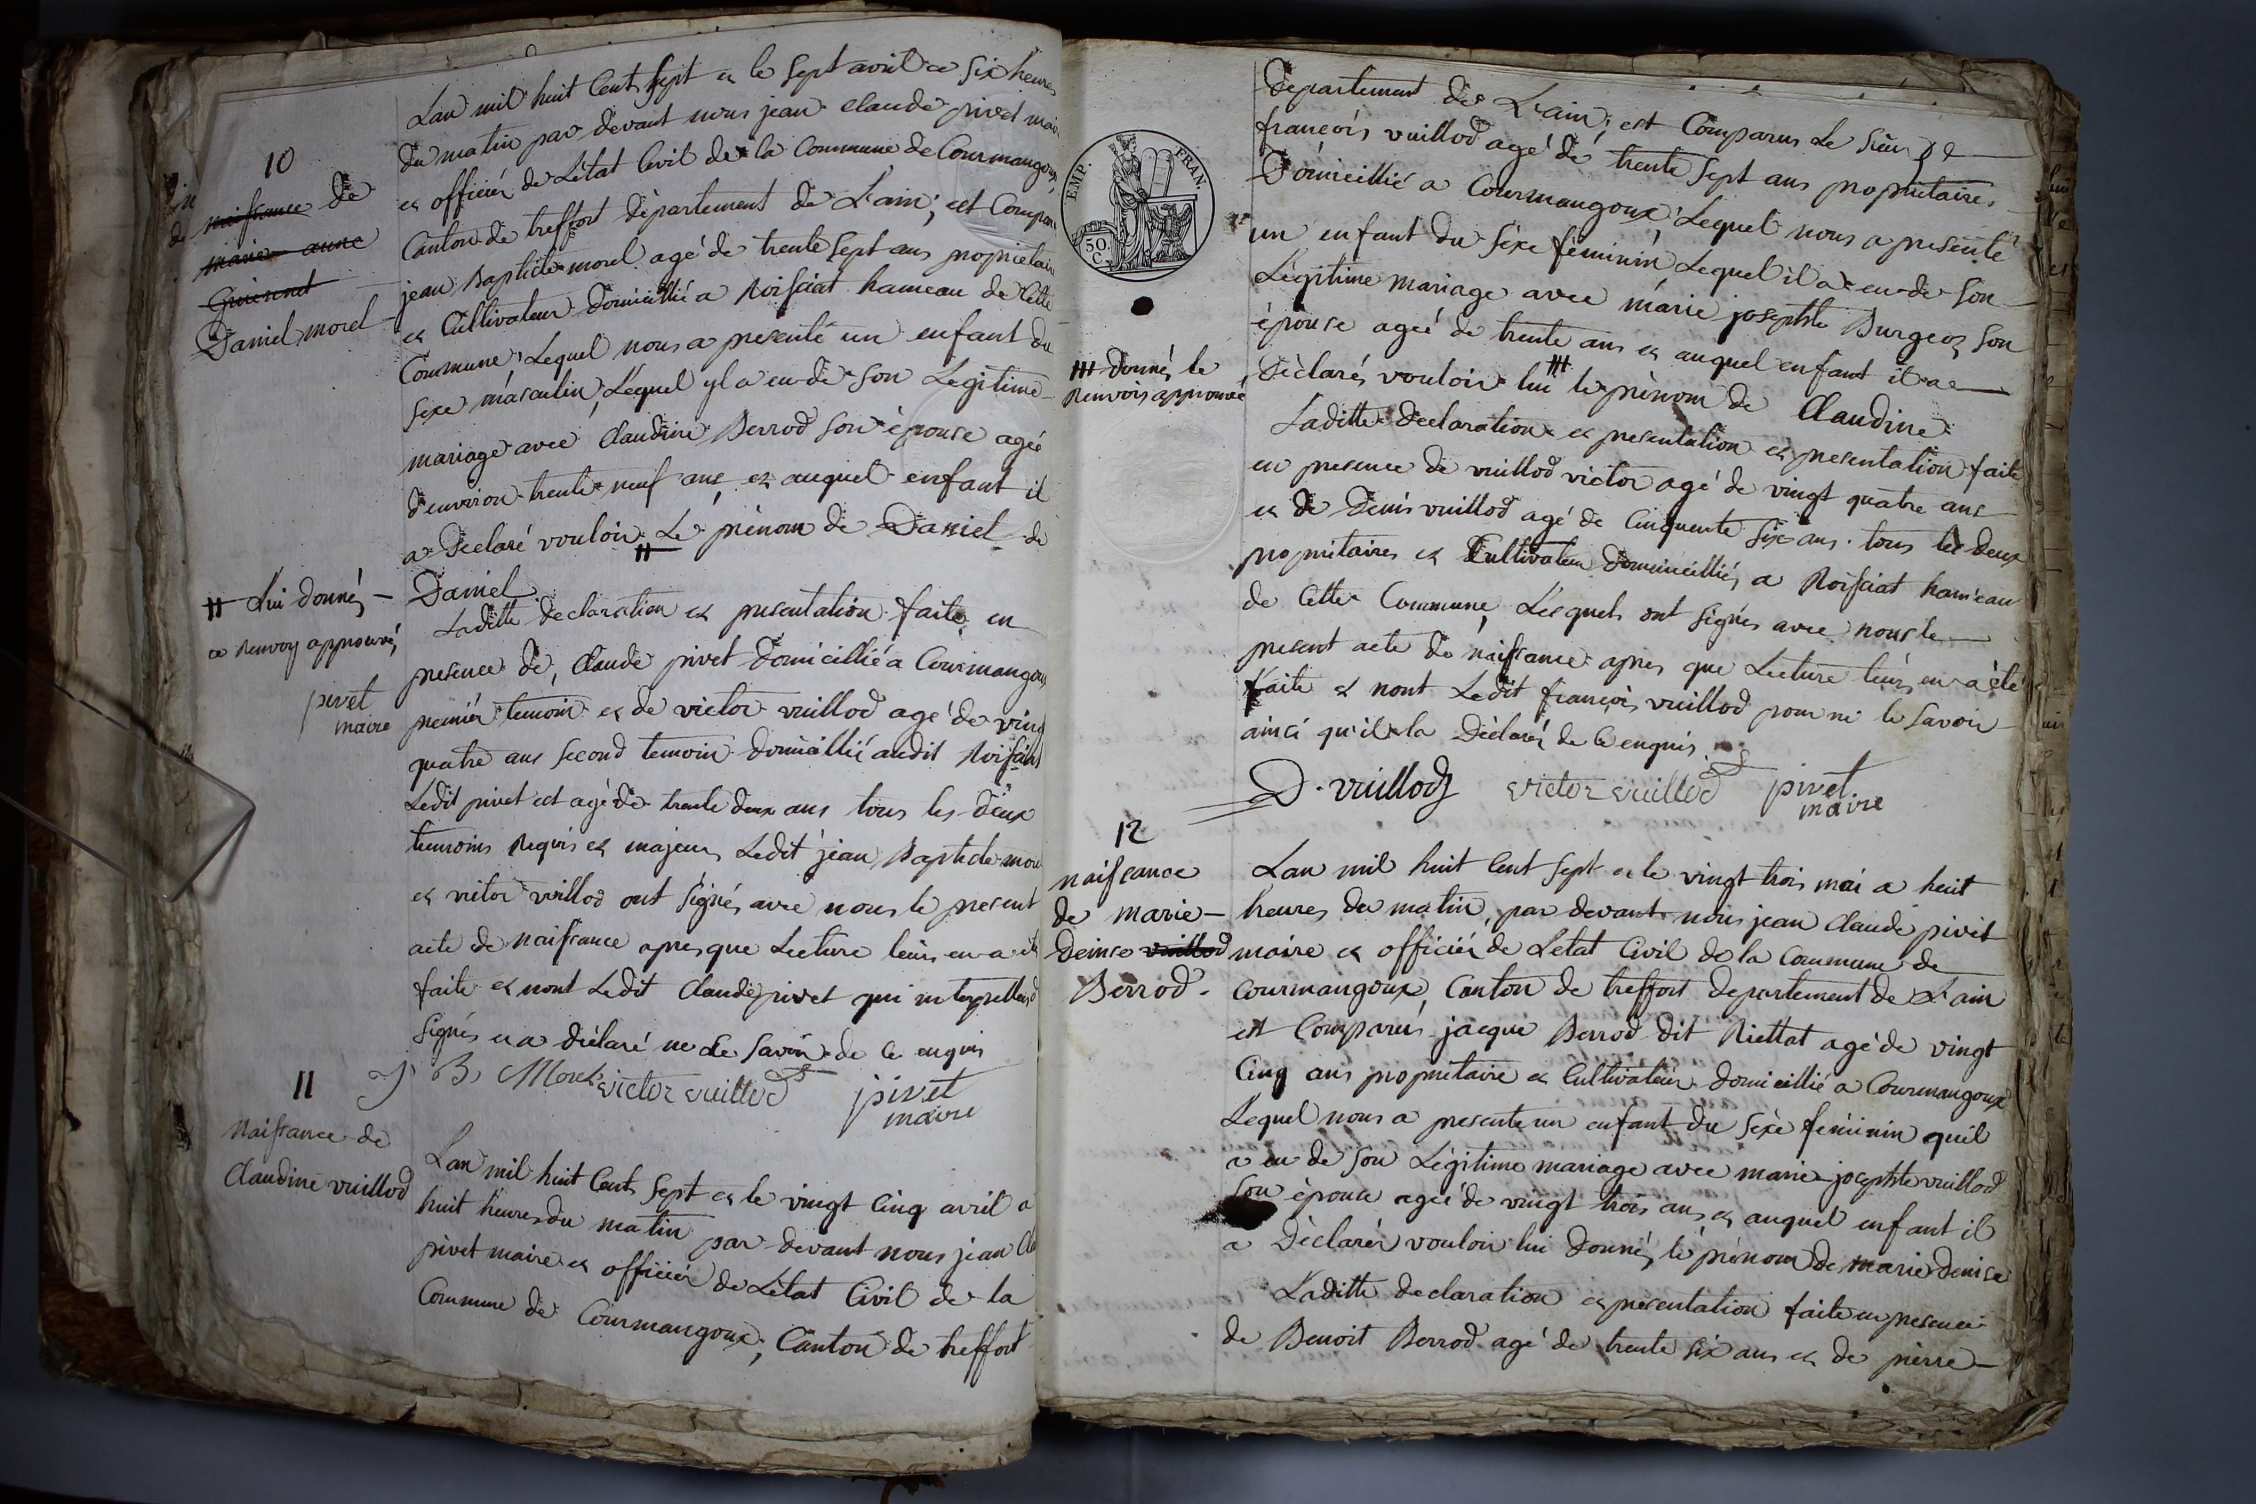 10
naissance de
marie anne
Guironnet
Daniel morel
Lan mil huit Cent sept & le sept avril a six heures
du matin par devant nous jean claude pivet mair
& officier de Létat Civil de la Commune de Courmangoux,
Canton de treffort département de L'ain; est Compar
jean Baptiste morel agé de trente sept ans proprietair
& Cultivateur domicillié a Roissiat hameau de Cette
Commune, Lequel nous a presenté un enfant du
sexe masculin, Lequel yl a eu de son Legitime
mariage avec Claudine Berrod son épouse agée
d'environ trente neuf ans, & auquel enfant il
a declaré vouloir Le prénom de Daniel de
Daniel
# Lui donnés
ce renvoy approuvé
pivet
maire
Laditte declaration & presentation faite en
presence de, Claude pivet domicillié a Courmangoux
premier temoin & de victor vuillod agé de ving
quatre ans second temoin domicillié audit Roissiat
Ledit pivet est agé de trente deux ans tous les deux
temoins requis & majeurs Ledit jean Baptiste more
& victor vuillod ont signés avec nous le present
acte de naissance apres que Lecture leurs en a été
faite & nont Ledit Claude pivet qui interpellé de
signés en a déclaré ne Le savoir de ce enquis
J B Morel victor vuillod pivet
maire
11
Naissance de
Claudine vuillod
Lan mil huit Cent sept & le vingt Cinq avril a
huit heures du matin par devant nous jean Cla
pivet maire & officier de Létat Civil de la
Commune de Courmangoux, Canton de treffort
EMP. FRAN.
50.
C.
département de L'ain; est Comparus Le sieur
françois vuillod agé de trente sept ans proprietaires
Domicillié a Courmangoux, Lequel nous a presenté
un enfant du séxe féminin Lequel il a eu de son
Légitime mariage avec marie josephte Burgeoz son
épouse agéé de trente ans & auquel enfant il a
déclarés vouloir lui # le prénom de Claudine
# donnés le
Renvois approuvé
Laditte declaration & presentation & presentation faite
en presence de vuillod victor agé de vingt quatre ans
& de Denis vuillod agé de Cinquente six ans tous les deux
propriétaires & Cultivateur domicilliés a Roissiat hameau
de Cette Commune, Lesquels ont signés avec nous le
present acte de naissance apres que Lecture leurs en a été
faite & nont Ledit françois vuillod pour ne le savoir
ainci qu'il la déclarés de ce enquis
D. vuillod victor vuillod pivet
maire
12
naissance
de marie
denise vuillod
Berrod.
Lan mil huit Cent sept & le vingt trois mai a huit
heures du matin, par devant nous jean Claude pivet
maire & officier de Létat Civil de la Commune de
Courmangoux, Canton de treffort departement de L'ain
est Comparus jacque Berrod dit Riettat agé de vingt
Cinq ans proprietaire & Cultivateur domicillié a Courmangoux
Lequel nous a presente un enfant du séxe féminin quil
a eu de son Légitime mariage avec marie josephte vuillod
son épouce agéé de vingt trois ans & auquel enfant il
a Déclarés vouloir lui donnés le prénom de marie denise
Laditte declaration & presentation faite en presence
de Benoit Berrod agé de trente six ans & de pierre